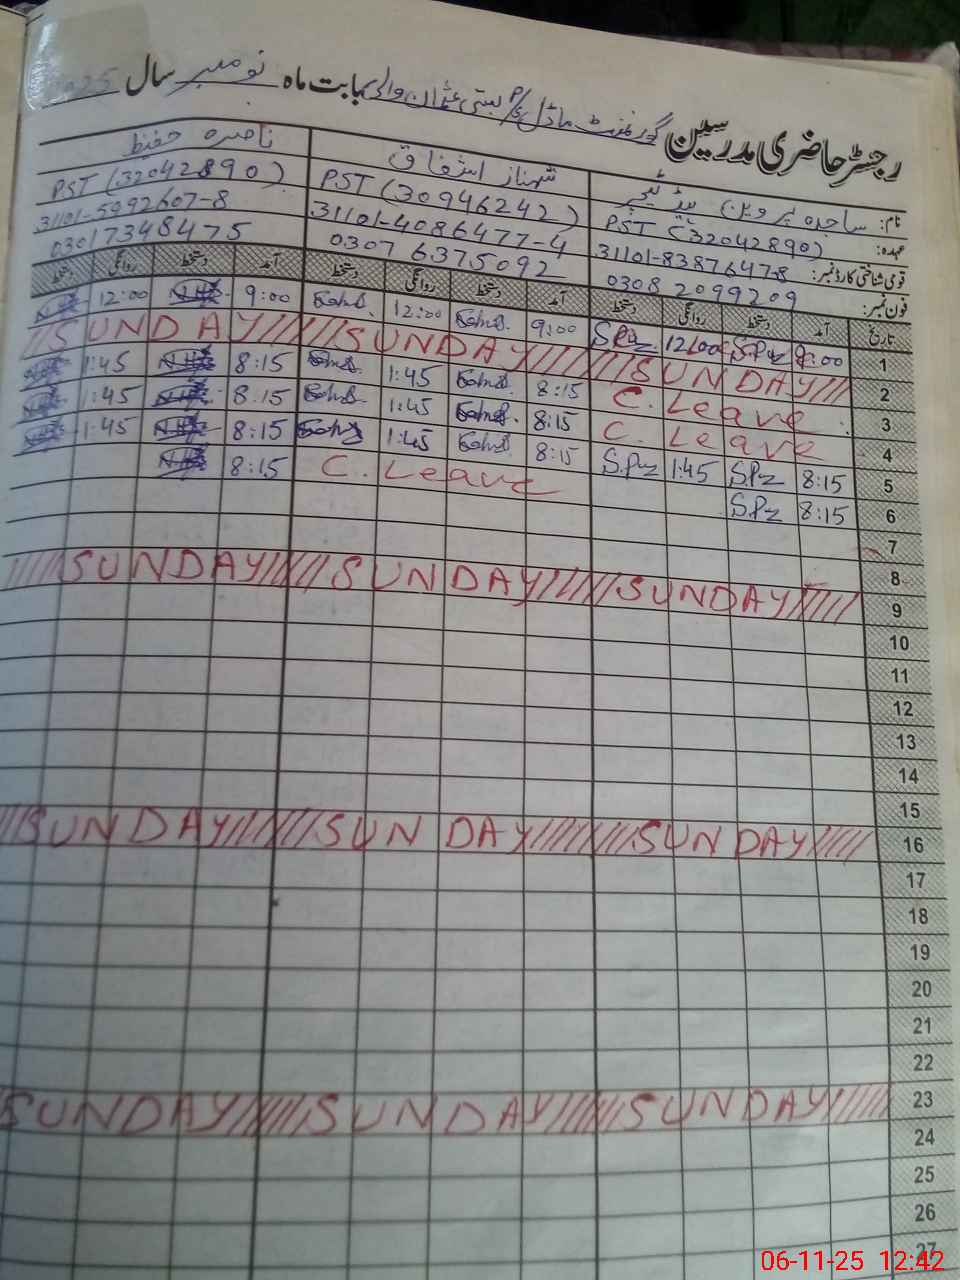 رجسٹر حاضری مدرسین گورنمنٹ ماڈل P/S بستی عثمان والی بابت ماہ نومبر سال 2025
نام: ساجدہ پروین ہیڈ ٹیچر شہناز اشفاق ناصرہ حفیظ
عہدہ: PST (32042890) PST (30946242) PST (32042890)
قومی شناختی کارڈ نمبر: 31101-8387647-8 31101-4086477-4 31101-5992607-8
فون نمبر: 0308 2099209 0307 6375092 03017348475
تاریخ آمد دستخط روانگی دستخط آمد دستخط روانگی دستخط آمد دستخط روانگی دستخط
1 9:00 S.Pz 12:00 S.Pz 9:00 12:00 9:00 12:00
2 SUNDAY SUNDAY SUNDAY
3 C. Leave 8:15 1:45 8:15 1:45
4 C. Leave 8:15 1:45 8:15 1:45
5 8:15 S.Pz 1:45 S.Pz 8:15 1:45 8:15 1:45
6 8:15 S.Pz C. Leave 8:15
7
8
9 SUNDAY SUNDAY SUNDAY
10
11
12
13
14
15
16 SUNDAY SUNDAY SUNDAY
17
18
19
20
21
22
23 SUNDAY SUNDAY SUNDAY
24
25
26
27
06-11-25 12:42